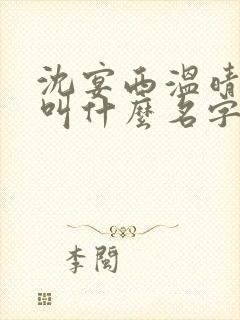 沈宴西温晴
叫什麽名字
李闽